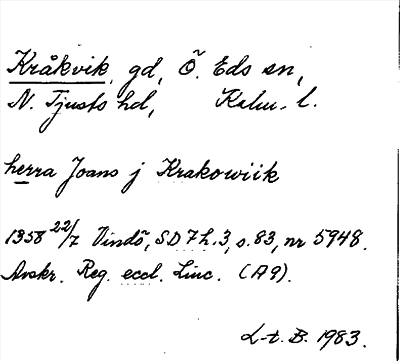 Kråkvik, gd, Ö. Eds sn,
N. Tjusts hd, Kalm. l.
herra Joans j Krakowiik
1358 22/7 Vindö, SD 7 h.3, s.83, nr 5948.
Avskr. Reg. eccl. Linc. (A9).
L-t. B. 1983.